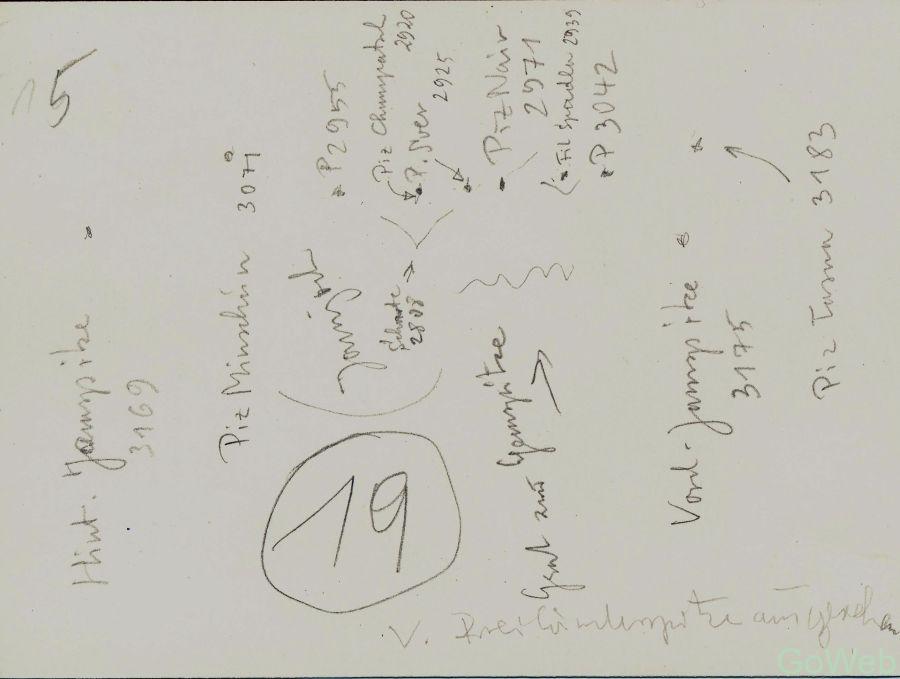 5
Hint. Jamspitze
3169
Piz Minschùn 3071
P 2955
Piz Champatsch
2920
P. Sver
2925
Piz Nair
2971
Fil Spadla 2939
P 3042
Jamjoch
Scharte
2808
19
Grat zur Jamspitze
Vord. Jamspitze
3175
Piz Tasna 3183
V. Dreiländerspitze aus gesehen
GoWeb